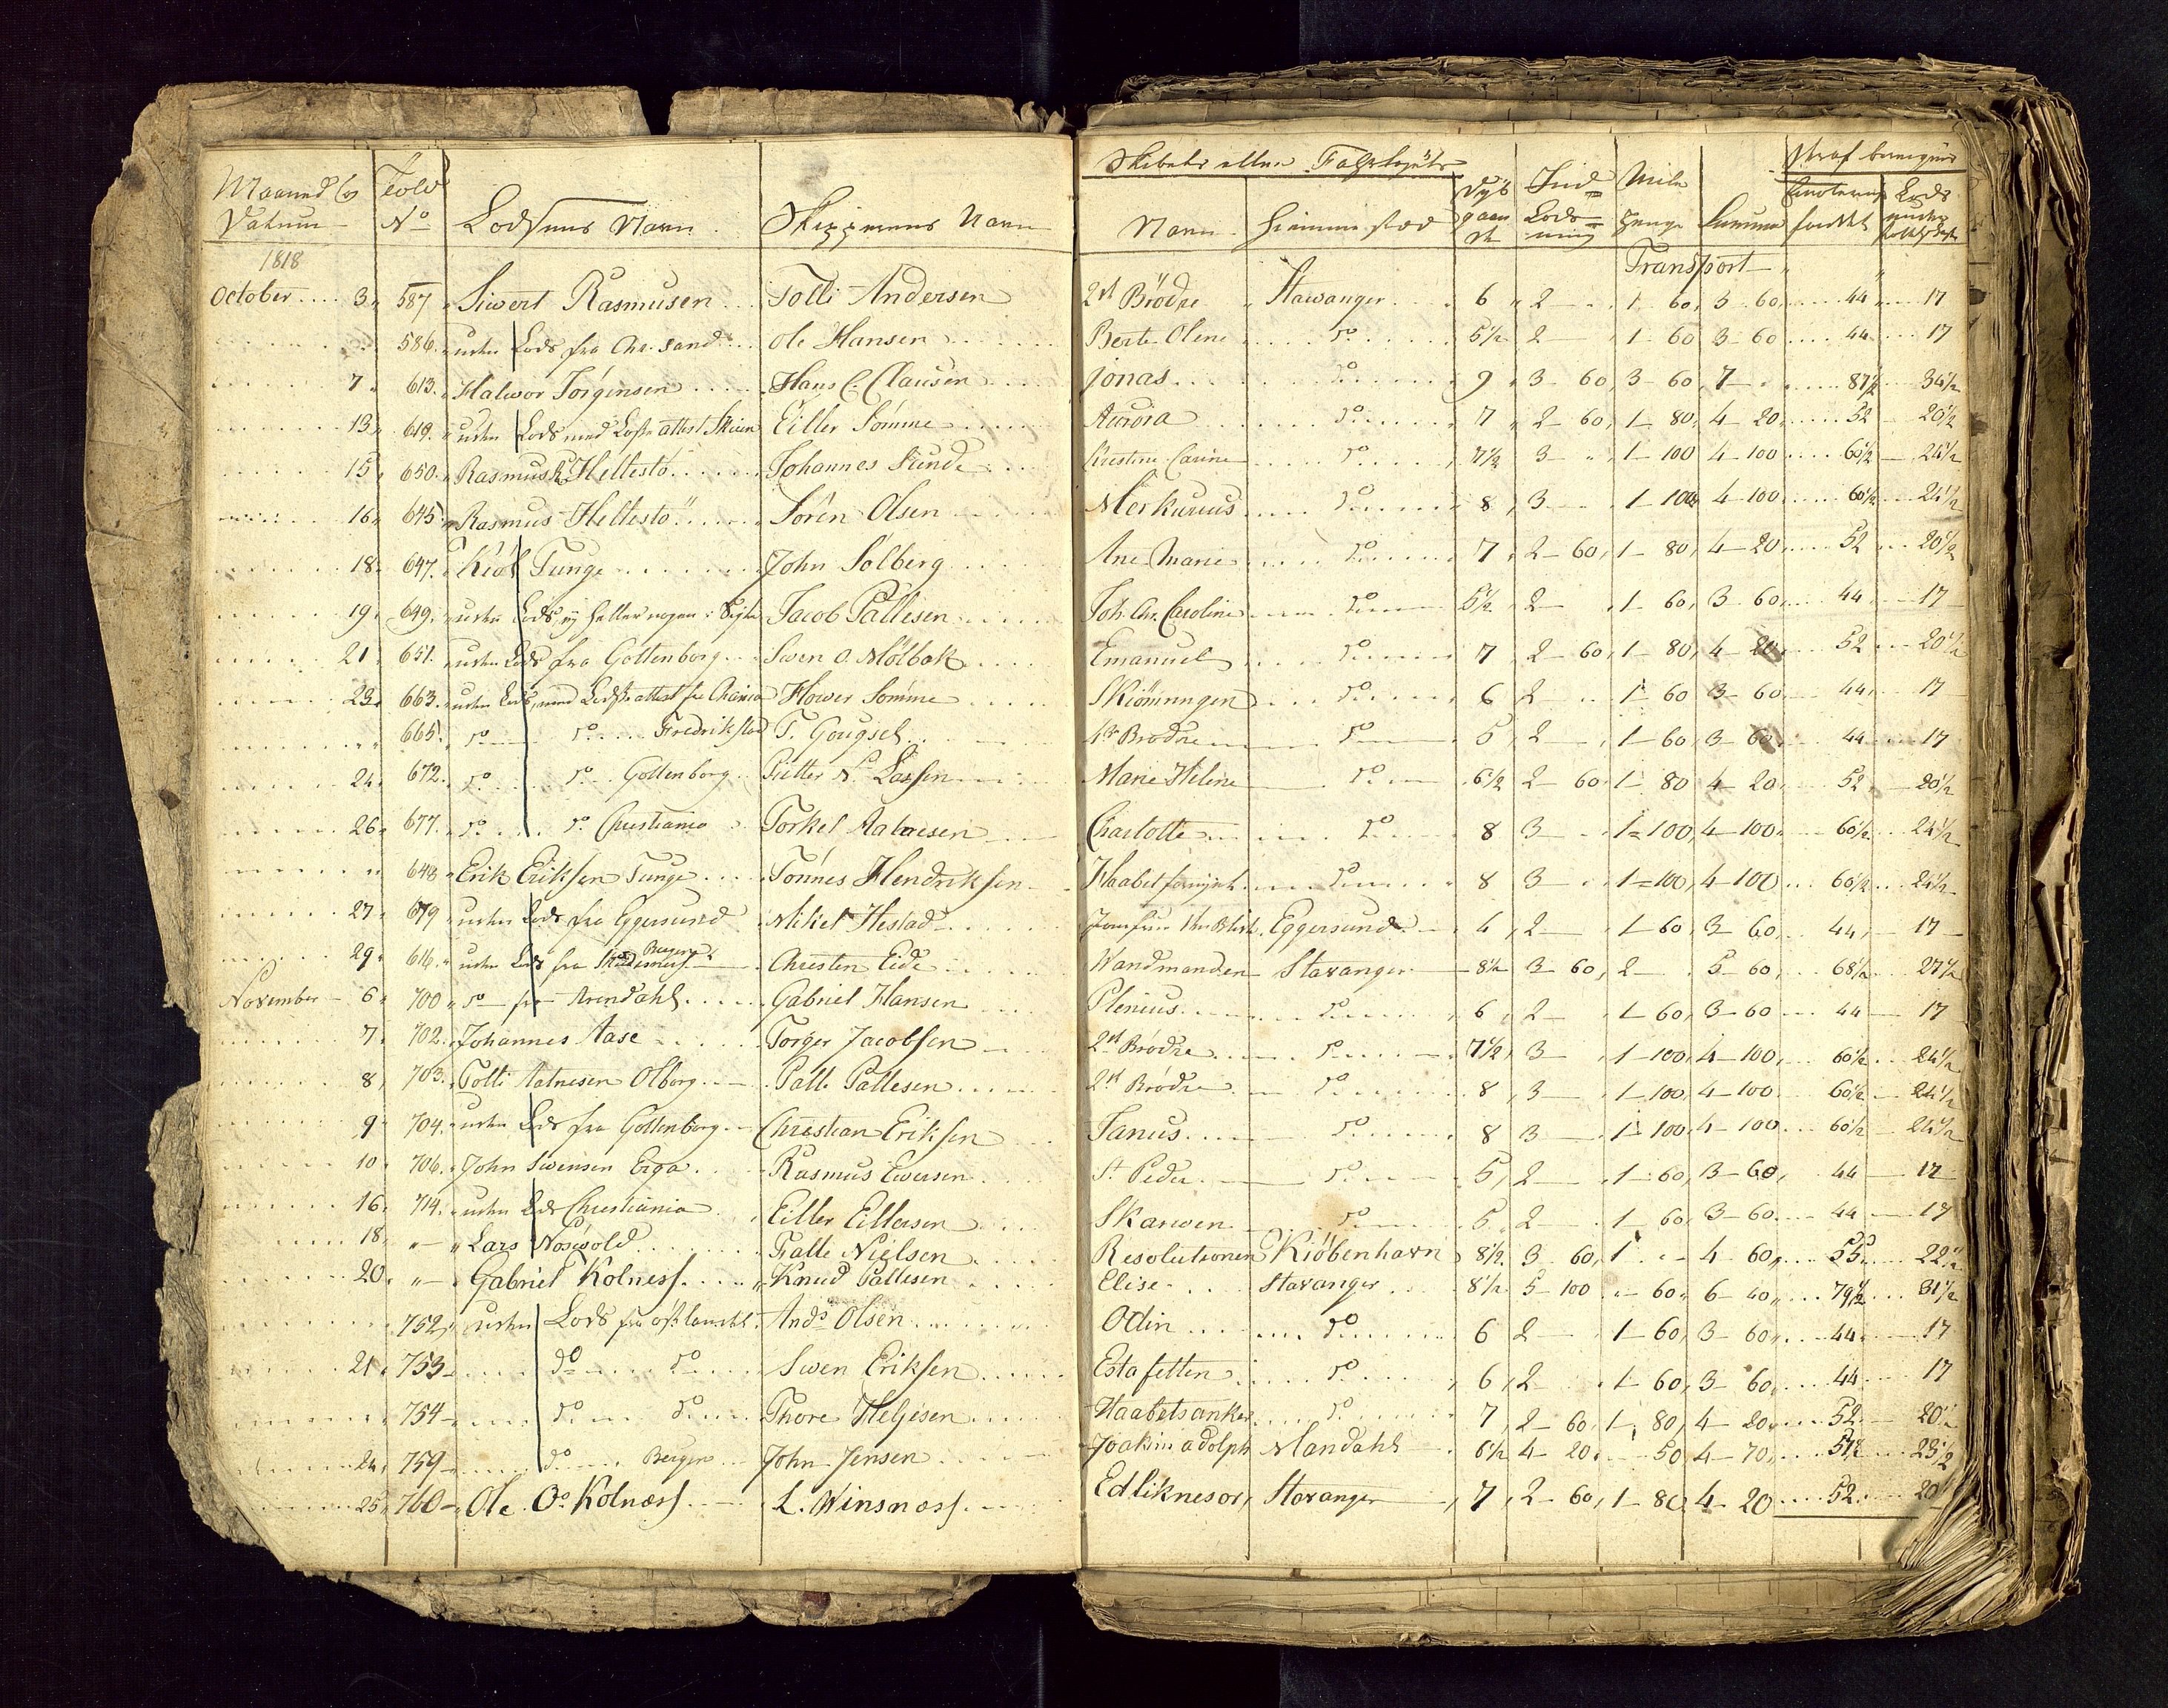 Maaned og Datum Told No Lodsens Navn Skipperens Navn
Skibets eller Fartøjets
Navn Hiemmestæd Dyb gaaende Ind Lodsning Mile Penge Summa
1818
Transport
October 3 587 Siwert Rasmusen Tolli Andersen 2de Brødre Stawanger 6 2 1 60 3 60 44 17
586 uden Lods fra Chr.sand Ole Hansen Berte Olene do 5½ 2 1 60 3 60 44 17
7 613 Halwor Jørgensen Hans C. Clausen Jonas do 9 3 60 3 60 7 87½ 34½
13 619 uden Lods med Lods attest Skien Eiller Sømme Aurora do 7 2 60 1 80 4 20 52 20½
15 650 Rasmus Hellestø Johannes Sunde Christine Carine do 7½ 3 1 100 4 100 60½ 24½
16 645 Rasmus Hellestø Sören Olsen Merkurius do 8 3 1 100 4 100 60½ 24½
18 647 Kiøl Tunge John Solberg Ane Marie do 7 2 60 1 80 4 20 52 20½
19 649 uden Lods ej heller nogen i Sigte Jacob Pallesen Joh. Chr. Caroline do 5½ 2 1 60 3 60 44 17
21 651 uden Lods fra Gottenborg Swen O. Mølbak Emanuel do 7 2 60 1 80 4 20 52 20½
23 663 uden Lods med Lods attest fra Chania Hower Sømme Skiømningen do 6 2 1 60 3 60 44 17
665 do do Fredrikstad T. Gougsel Brødre do 5 2 1 60 3 60 44 17
24 672 do do Gottenborg Pitter N. Lassen Marie Helene do 6½ 2 60 1 80 4 20 52 20½
26 677 do do Christiania Torkel Aatnesen Charlotte do 8 3 1 100 4 100 60½ 24½
648 Erik Eriksen Tunge Tönnes Hendriksen Haabet do 8 3 1 100 4 100 60½ 24½
27 679 uden Lods fra Eggersund Mikel Hestad Eggersund 4 2 1 60 3 60 44 17
29 616 uden Lods fra Bergen Christen Eide Wandmanden Stavanger 8½ 3 60 2 5 60 68½ 27½
November 6 700 do fra Arendahl Gabriel Hansen Plenius do 6 2 1 60 3 60 44 17
7 702 Johannes Aase Torger Jacobsen 2de Brødre do 7½ 3 1 100 4 100 60½ 24½
8 703 Tolli Aatnesen Olborg Palle Pallesen 2de Brødre do 8 3 1 100 4 100 60½ 24½
9 704 uden Lods fra Gottenborg Christian Eriksen Janus do 8 3 1 100 4 100 60½ 24½
10 706 John Swensen Erga Rasmus Ewersen St Peder do 5 2 1 60 3 60 44 17
16 714 uden Lods Christiania Eiller Eillersen Skarwen do 5 2 1 60 3 60 44 17
18 " Lars Nøsewold Falle Nielsen Resolutionen Kiöbenhavn 8½ 3 60 1 4 60 55 22
20 " Gabriel Kolness Knud Pallesen Elise Stavanger 8½ 5 100 60 6 40 79½ 31½
752 uden Lods fra Østlandet Ands Olsen Odin do 6 2 1 60 3 60 44 17
21 753 do do Swen Eriksen Estafetten do 6 2 1 60 3 60 44 17
754 do do Thore Helgesen Haabets anker do 7 2 60 1 80 4 20 52 20
24 759 do Bergen John Jensen Joakim adolph Mandahl 6½ 4 20 50 4 70 57½ 23½
25 760 Ole Os Kolnæss L. Winsnæss Edliknesor Stavanger 7 2 60 1 80 4 20 52 20